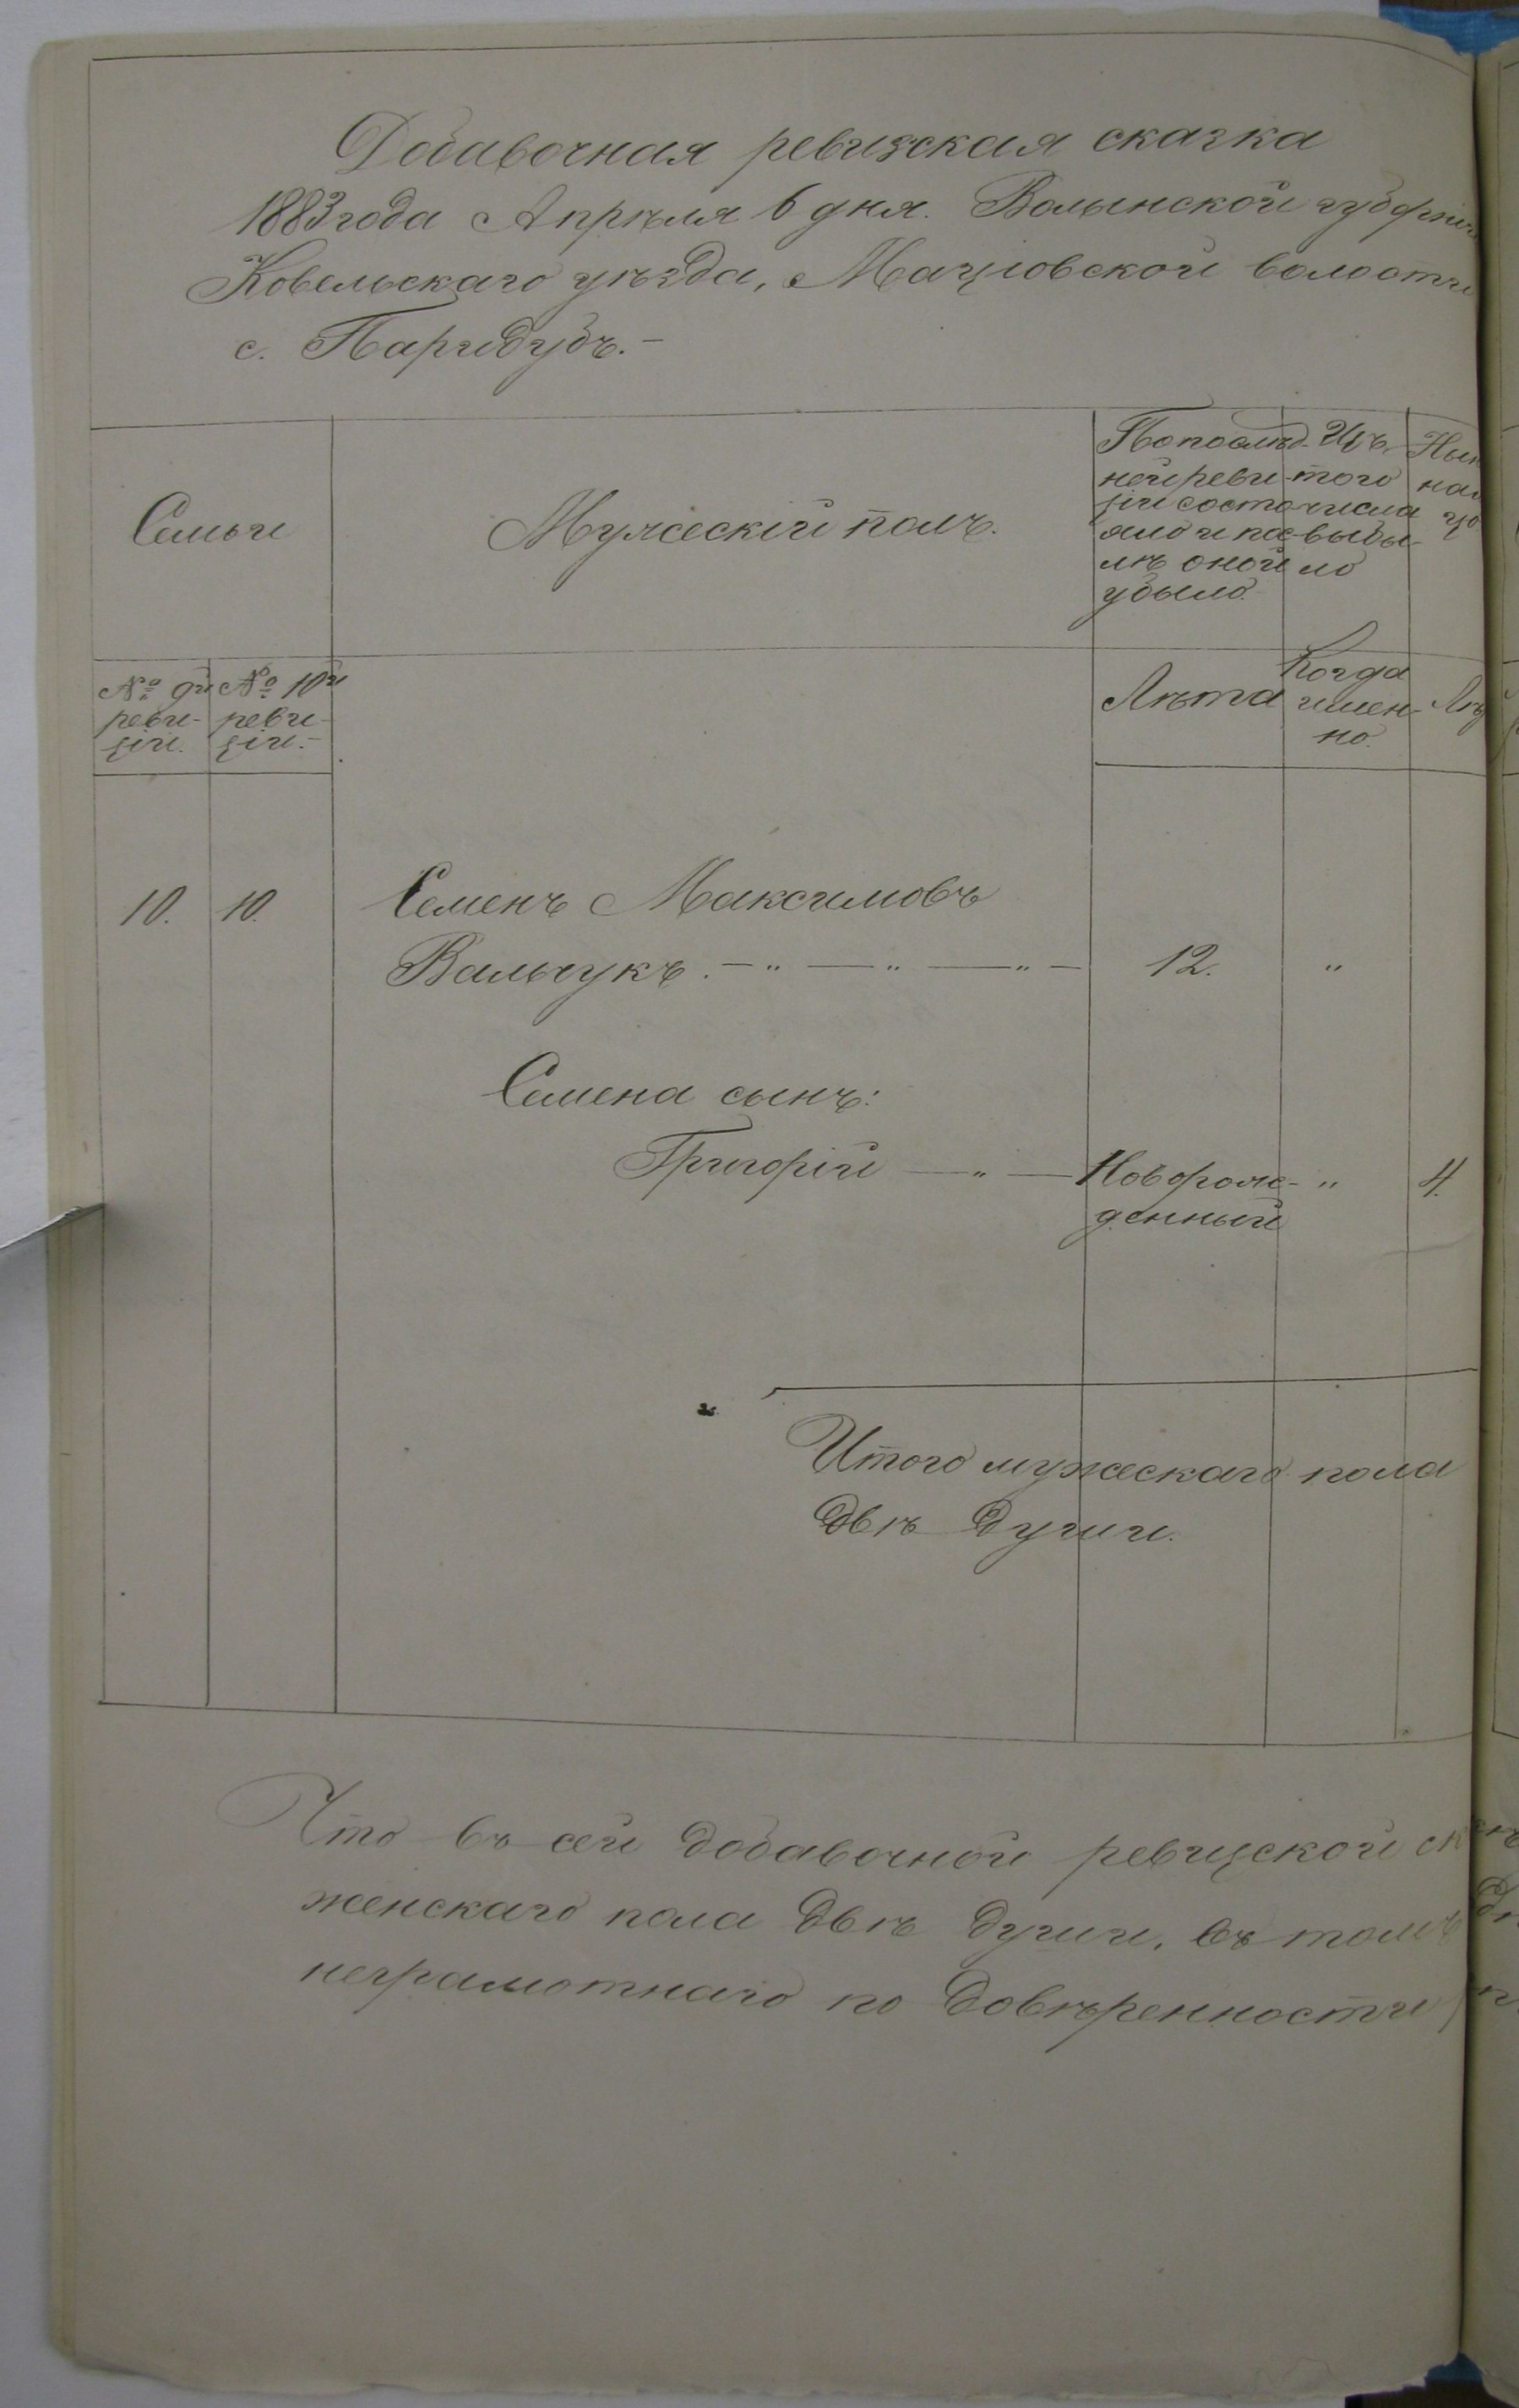 Добавочная ревизская сказка
1883 года Апрѣля 6 дня. Волынской губерніи
Ковельскаго уѣзда, Маціовской волости
с. Паридубъ.-
Семьи
Мужескій полъ.
По послѣд-
ней реви-
зіи состо-
яло и пос-
лѣ оной
убыло.
Изъ
того
числа
выбы-
ло
№ 9й
реви-
зіи.
№ 10й
реви-
зіи.-
Лѣта
Когда
имен-
но.
10. 10. Семенъ Максимовъ
Вальчукъ. - „ — „ — „ - 12. „
Семена сынъ:
Григорій — „ — Новорож- „ 4.
денный
Итого мужескаго пола
двѣ души.
Что въ сей добавочной ревизской
женскаго пола двѣ души, въ томъ
неграмотнаго по довѣренности